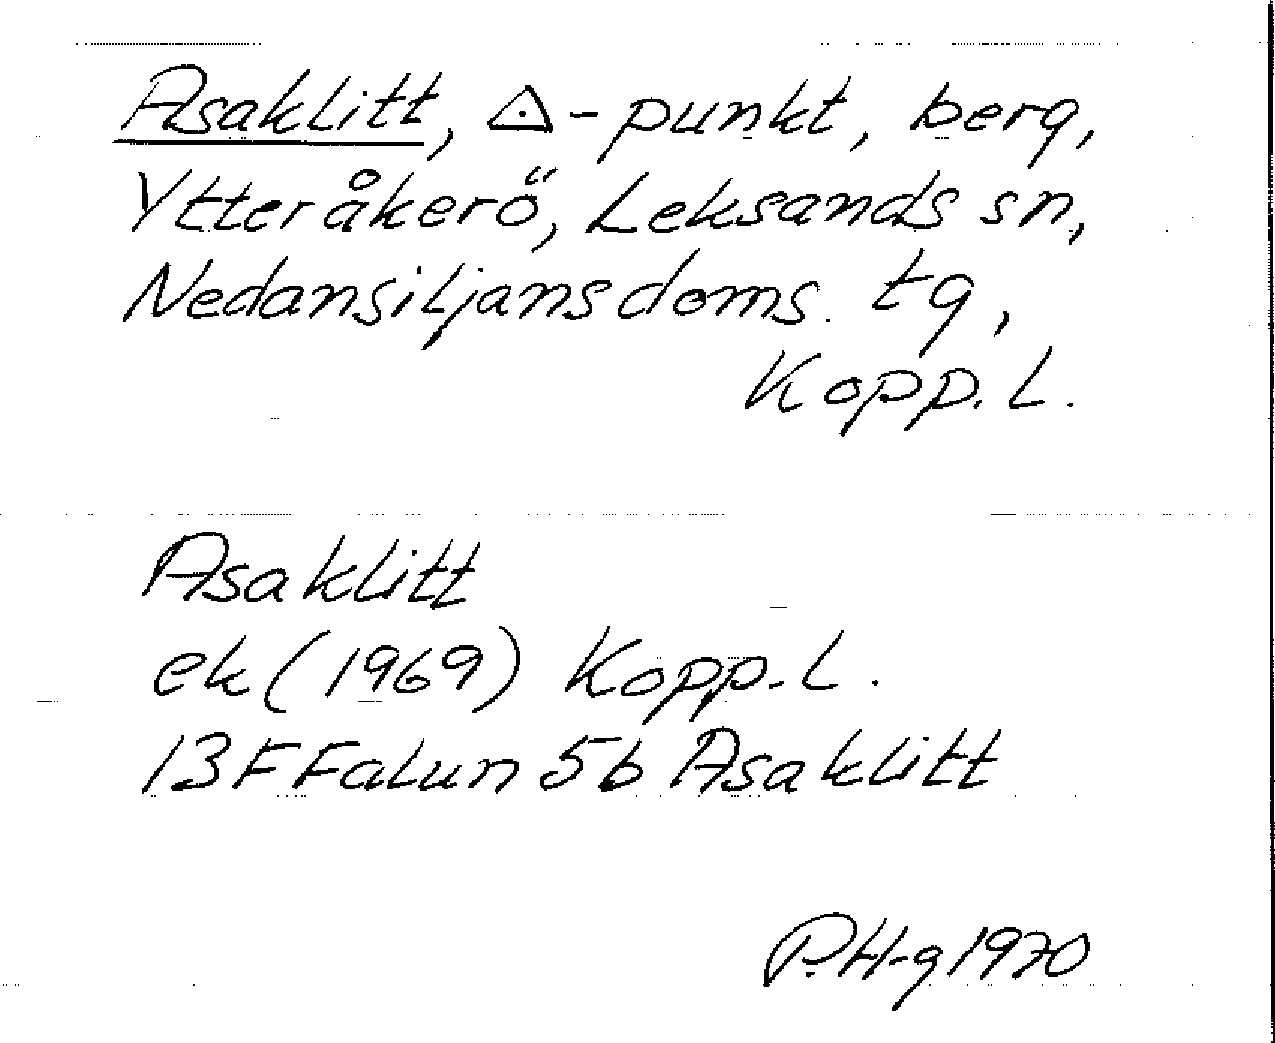 Asaklitt, △-punkt, berg,
Ytteråkerö, Leksands sn,
Nedansiljans doms. tg,
Kopp. L.
Asaklitt
ek (1969) Kopp. L.
13F Falun 5b Asaklitt
P.H-g 1970